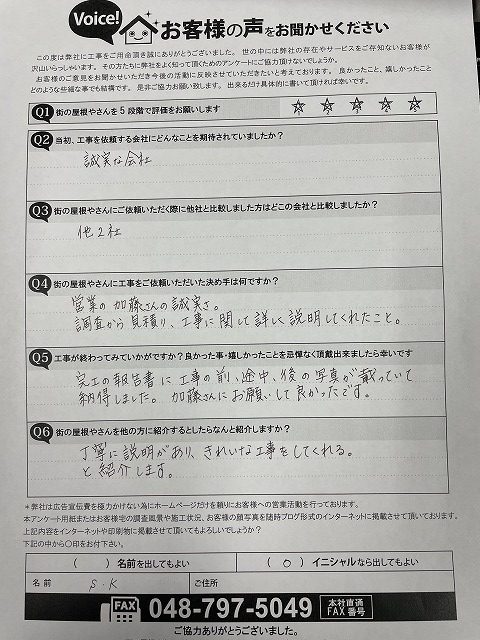 Voice!
お客様の声をお聞かせください
この度は弊社に工事をご用命頂き誠にありがとうございました。世の中には弊社の存在やサービスをご存知ないお客様が
沢山いらっしゃいます。その方たちに弊社をよく知って頂くためのアンケートにご協力頂けないでしょうか。
お客様のご意見をお聞かせいただき今後の活動に反映させていただきたいと考えております。良かったこと、嬉しかったこと
どのような些細な事でも結構です。是非ご協力お願い致します。出来るだけ具体的に書いて頂ければ幸いです。
Q1 街の屋根やさんを5段階で評価をお願いします
Q2 当初、工事を依頼する会社にどんなことを期待されていましたか？
誠実な会社
Q3 街の屋根やさんにご依頼いただく際に他社と比較しました方はどこの会社と比較しましたか？
他2社
Q4 街の屋根やさんに工事をご依頼いただいた決め手は何ですか？
営業の加藤さんの誠実さ。
調査から見積り、工事に関して詳しく説明してくれたこと。
Q5 工事が終わってみていかがですか？良かった事・嬉しかったことを忌憚なく頂戴出来ましたら幸いです
完工の報告書に工事の前、途中、後の写真が載っていて
納得しました。加藤さんにお願いして良かったです。
Q6 街の屋根やさんを他の方に紹介するとしたらなんと紹介しますか？
丁寧に説明があり、きれいな工事をしてくれる。
と紹介します。
＊弊社は広告宣伝費を極力かけない為にホームページだけを頼りにお客様への営業活動を行っております。
本アンケート用紙またはお客様宅の調査風景や施工状況、お客様の顔写真を随時ブログ形式のインターネットに掲載させて頂いております。
上記内容をインターネットや印刷物に掲載させて頂いてもよろしいでしょうか？
下記の中から〇印をお付下さい。
（　）名前を出してもよい （○）イニシャルなら出してもよい
名前 S.K ご住所
FAX 048-797-5049 本社直通 FAX番号
ご協力ありがとうございました。